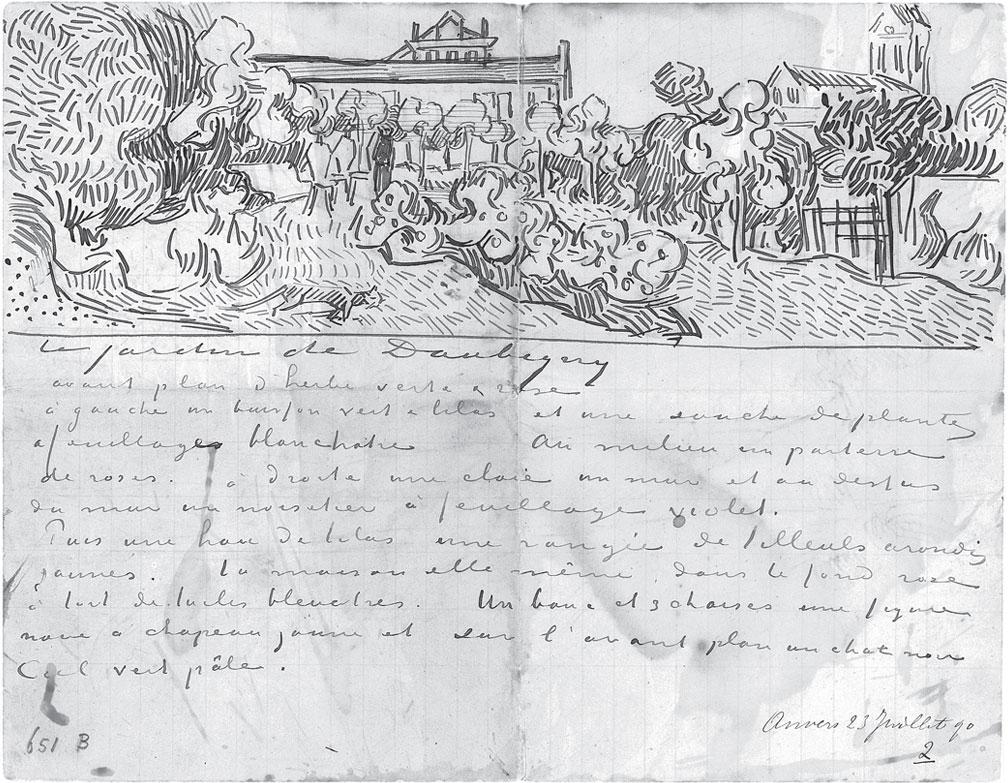 Le jardin de Daubigny
avant plan d'herbe verte & rose
à gauche un buisson vert & lilas et une souche de plantes
à feuillages blanchatre Au milieu un parterre
de roses. à droite une claie un mur et au dessus
du mur un noisetier à feuillage violet.
Puis une haie de lilas une rangée de tilleuls arondis
jaunes. La maison elle même dans le fond rose
à toit de tuiles bleuatres. Un banc et 3 chaises une figure
noire à chapeau jaune et sur l'avant plan un chat noir
Ciel vert pâle.
Auvers 23 Juillet 90
2
651 B